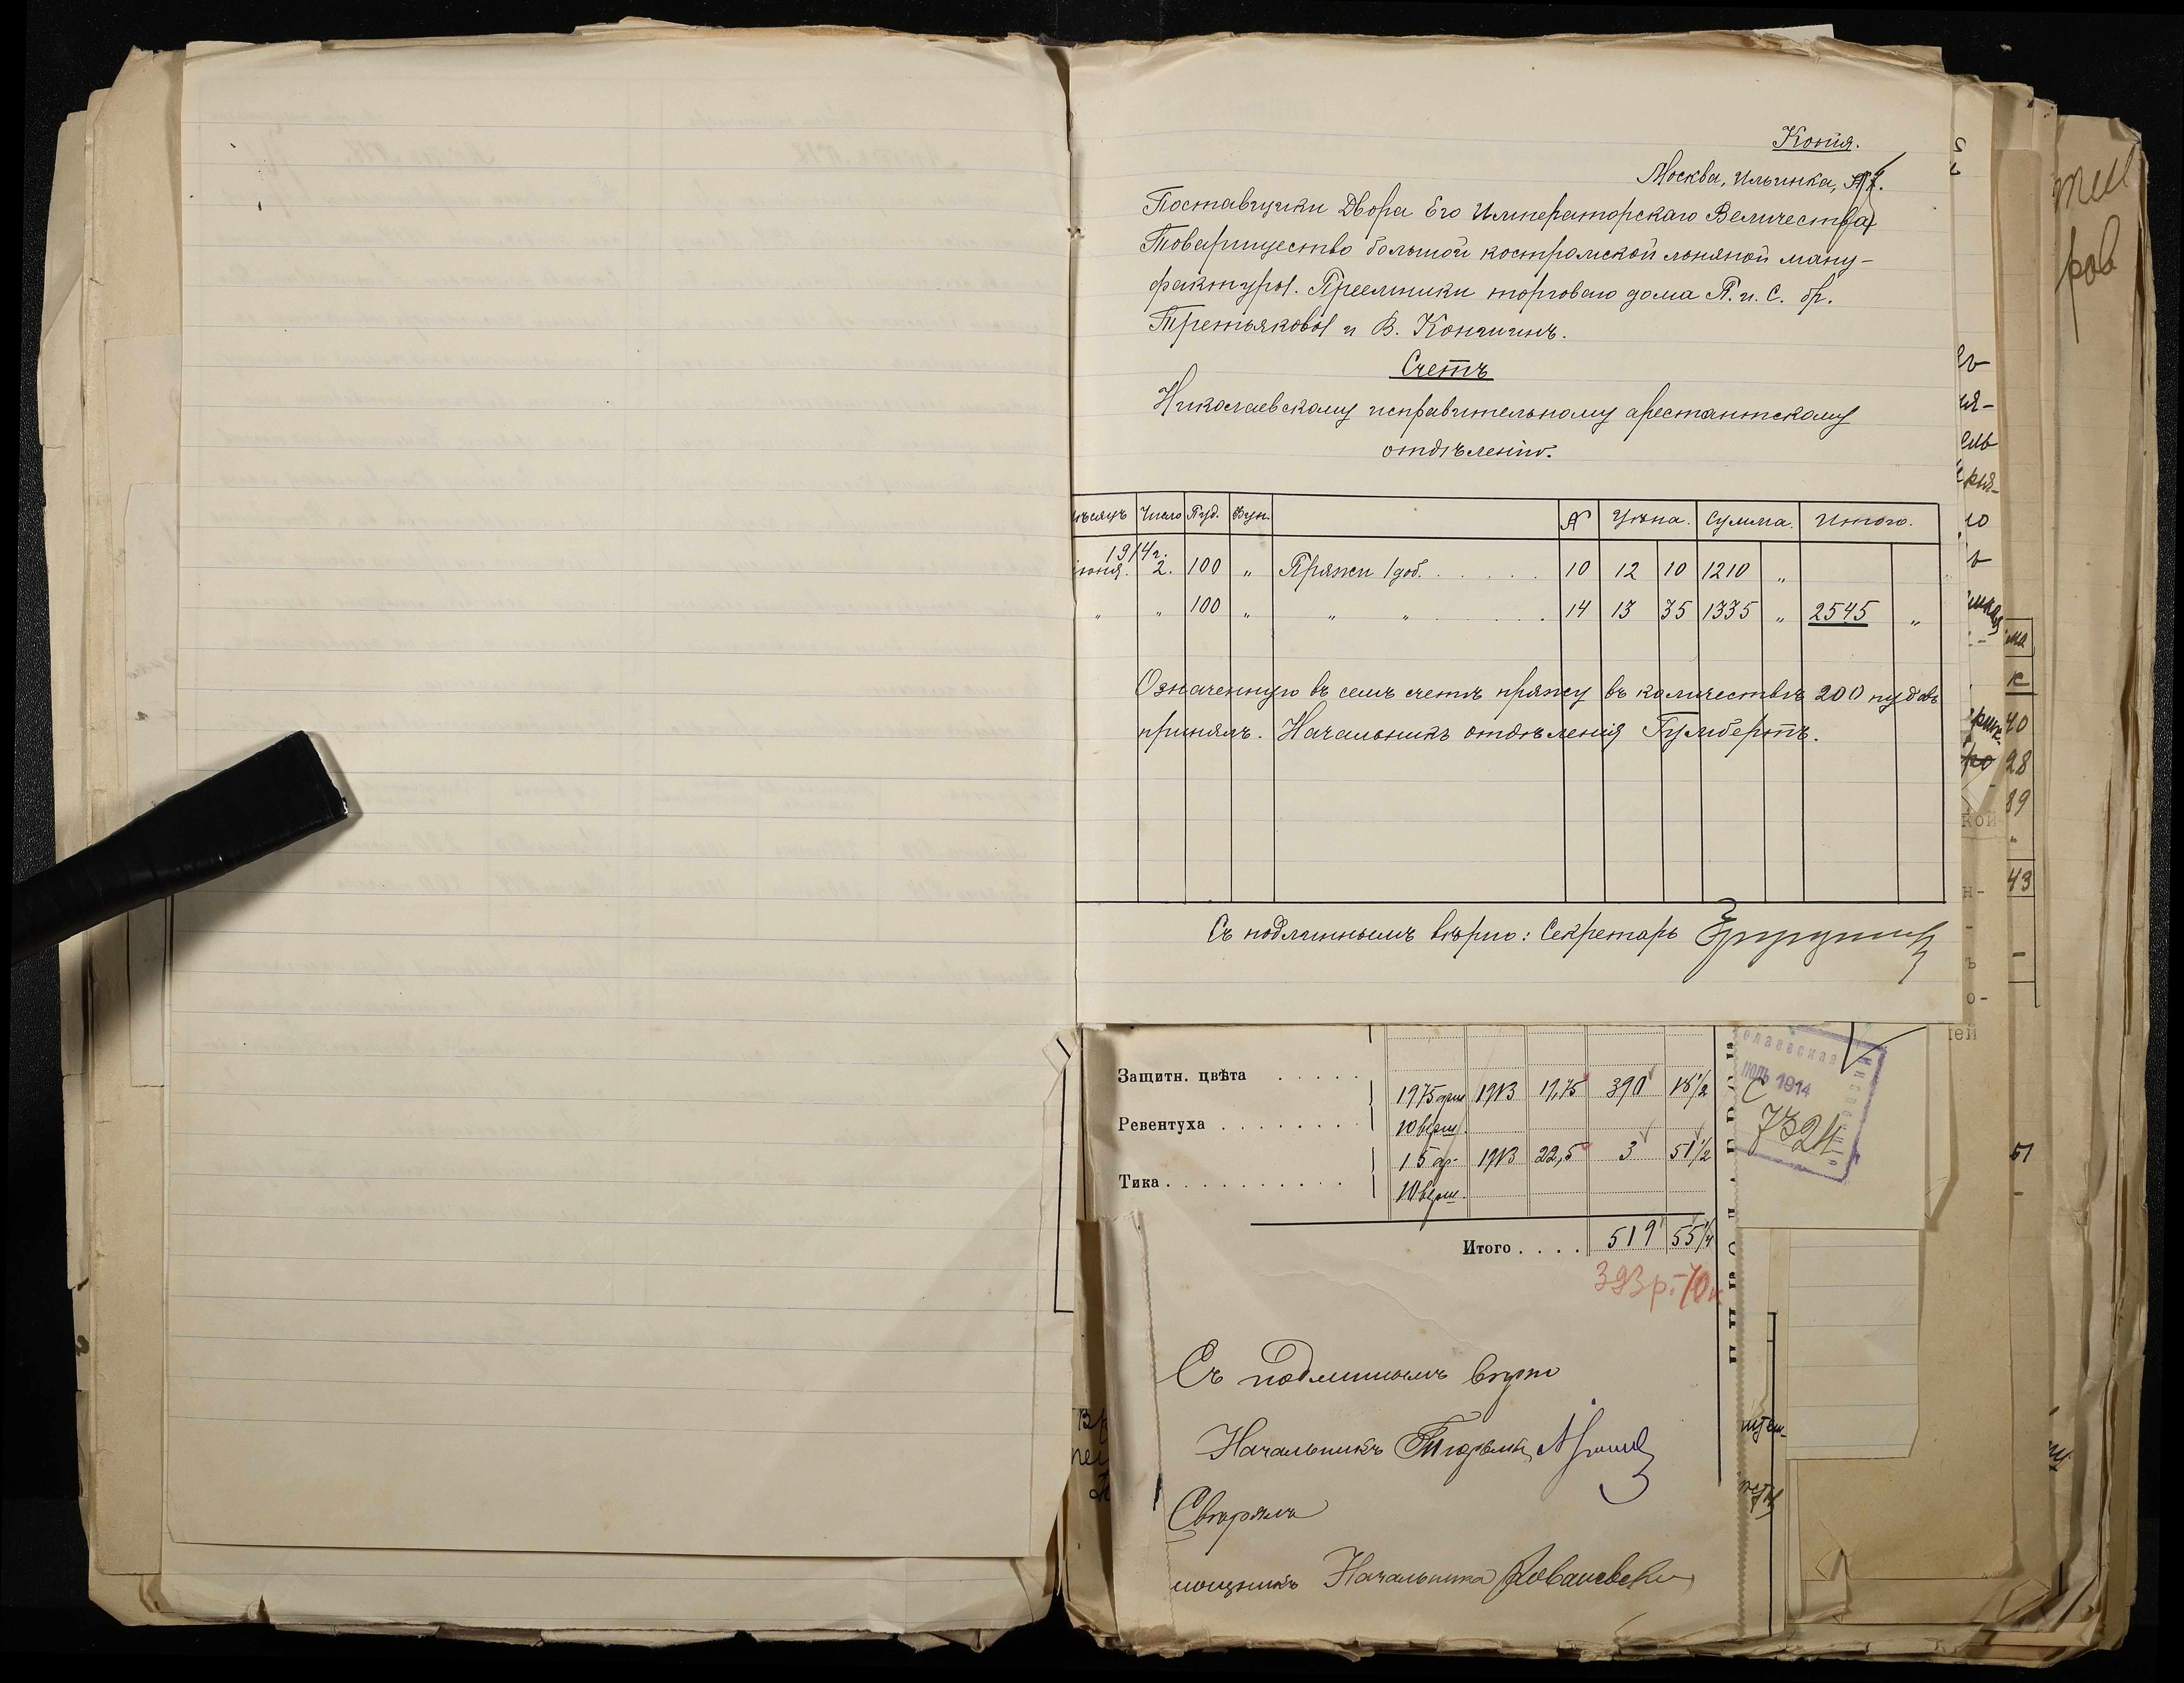 Копія.
Москва, Ильинка,
Поставщики Двора Его Императорскаго Величества
Товарищество большой костромской льняной ману-
фактуры. Преемники торговаго дома П. и. С. бр.
Третьяковы и В. Коншинъ.
Счетъ
Николаевскому исправительному арестантскому
отдѣленію.
мѣсяцъ Число Пуд. Фун. № Цѣна. Сумма. Итого.
1914 г.
іюня. 2. 100 „ Пряжи 1 доб. . . . . . 10 12 10 1210 „
„ „ 100 „ „ „ . . . . . . 14 13 35 1335 „ 2545 „
Означенную въ семъ счетѣ пряжу въ количествѣ 200 пудовъ
принялъ. Начальникъ отдѣленія Гумбертъ.
Съ подлиннымъ вѣрно: Секретарь
Защитн. цвѣта . . . . .
1975 арш 1913 19,75 390 18 1/2
Ревентуха . . . . . . . .
10 верш.
15 ар. 1913 22,5 3 51 1/2
Тика . . . . . . . . . .
10 верш.
Итого . . . . 519 55 1/4
393 р. 70 к
Съ подлиннымъ вѣрно
Начальникъ Тюрьмы
Свѣрялъ
мощникъ Начальника Ковалевски
олаевская
ІЮЛЬ 1914
7324
40
28
89
43
кой
51